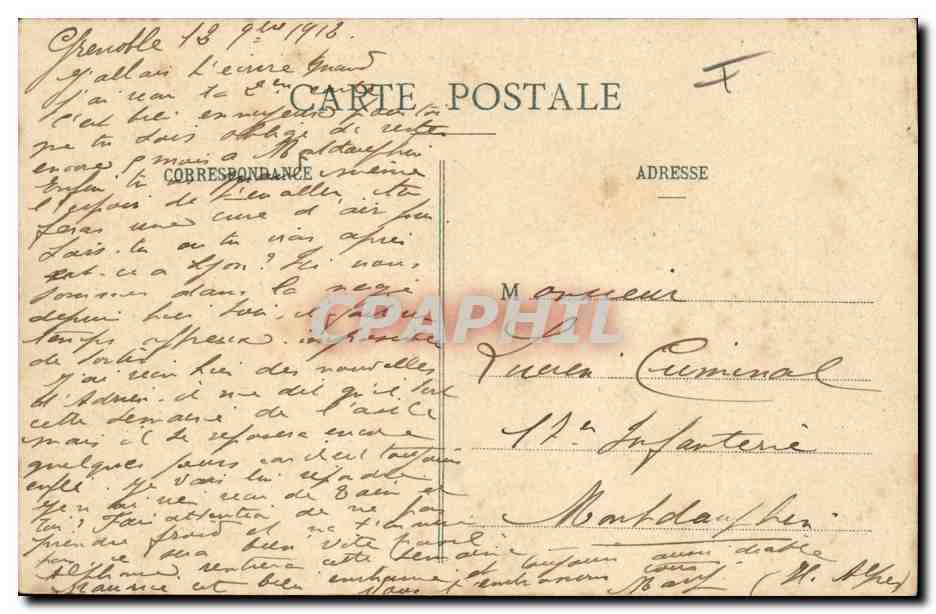 Grenoble 13 9bre 1912
J'allais t'écrire quand
j'ai reçu ta 2ème
CARTE POSTALE
C'est bien ennuyeux pour toi
que tu sois obligé de rester
encore mois à Montdauphin
CORRESPONDANCE
ADRESSE
Enfin tu as même
l'espoir de t'en aller, tu
feras une cure d'air
Sais-tu où tu vas après
est-ce à Lyon? Ici nous
sommes dans la neige
depuis hier soir, il fait un
temps affreux
de sortir
J'ai reçu hier des nouvelles
d'Adrien, il me dit qu'il sort
cette semaine de
mais il se reposera encore
quelques jours car il est toujours
enflé. Je vais lui répondre
je n'ai rien reçu de
toi? Fais attention de ne pas
prendre froid et ne t'ennuie
pas ce sera bien vite passé
Alphonse rentrera cette semaine
Maurice est bien enrhumé et toujours aussi diable
Nous t'embrassons tous
CPAPHIL
Monsieur
Lucien Criminal
17e Infanterie
Montdauphin
(H. Alpes)